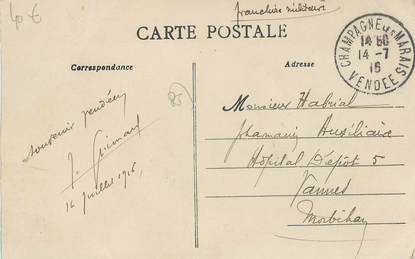 40 €
franchise militaire
CARTE POSTALE
Correspondance
Adresse
CHAMPAGNE LES MARAIS
14 50
14 - 7
16
VENDEE
85
Monsieur Habrial
pharmacien Auxiliaire
Hôpital Dépôt 5
Vannes
Morbihan
Souvenir vendéen
J. Grimard
14 juillet 1916